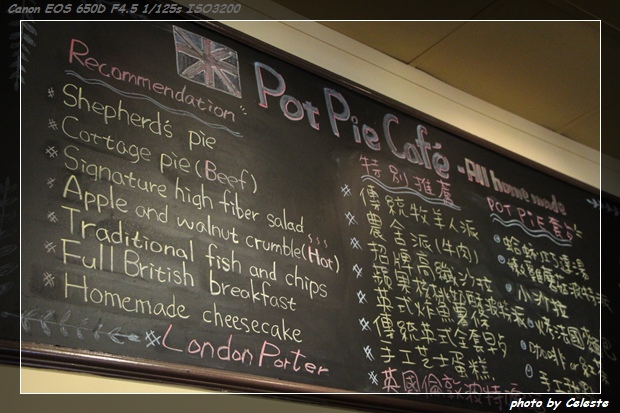 Canon EOS 650D F4.5 1/125s ISO3200
Pot Pie Café - All home made
Recommendation
* Shepherd's pie
* Cottage pie (Beef)
* Signature high fiber salad
* Apple and walnut crumble (Hot)
* Traditional fish and chips
* Full British breakfast
* Homemade cheesecake
* London Porter
特別推薦
* 傳統牧羊人派
* 農舍派(牛肉)
* 招牌高纖沙拉
* 蘋果核桃
* 英式炸魚薯條
* 傳統英式全套早
* 手工芝士蛋糕
* 英國倫敦波特
POT PIE套
小沙拉
photo by Celeste